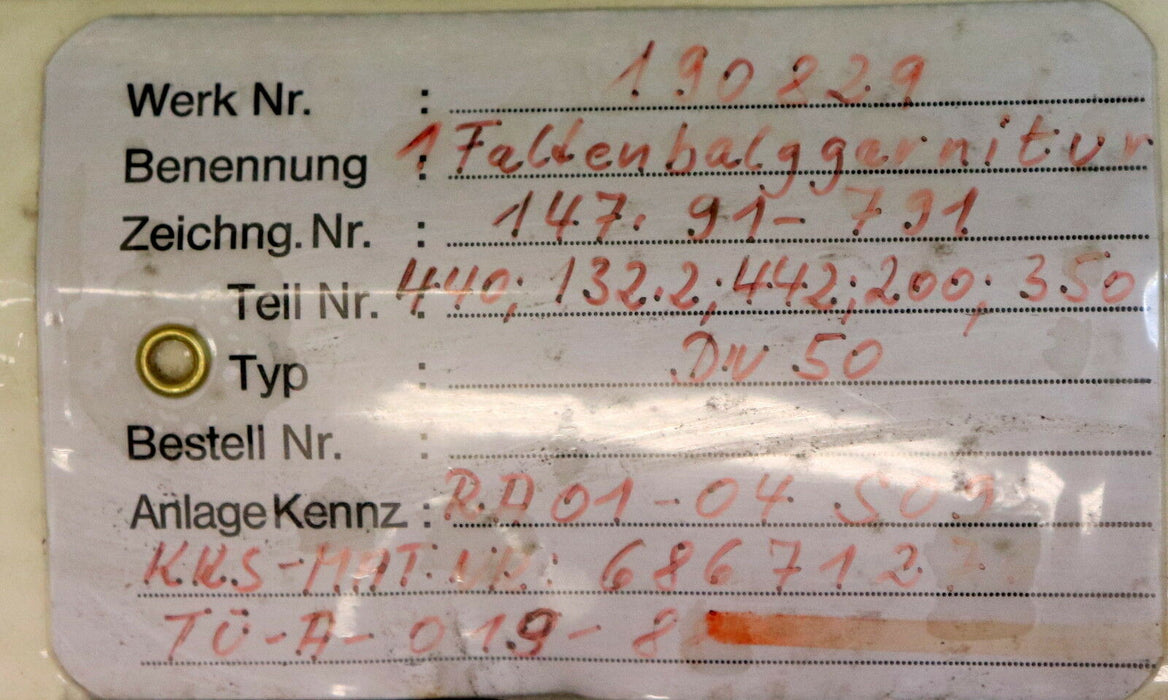 Werk Nr. : 190829
Benennung : 1 Faltenbalggarnitur
Zeichng. Nr. : 147. 91-791
Teil Nr. : 440; 132.2; 442; 200; 350
Typ : DN 50
Bestell Nr. :
Anlage Kennz : RA01-04 S09
KKS-MAT. Nr.: 6867127
TÜ-A-019-8